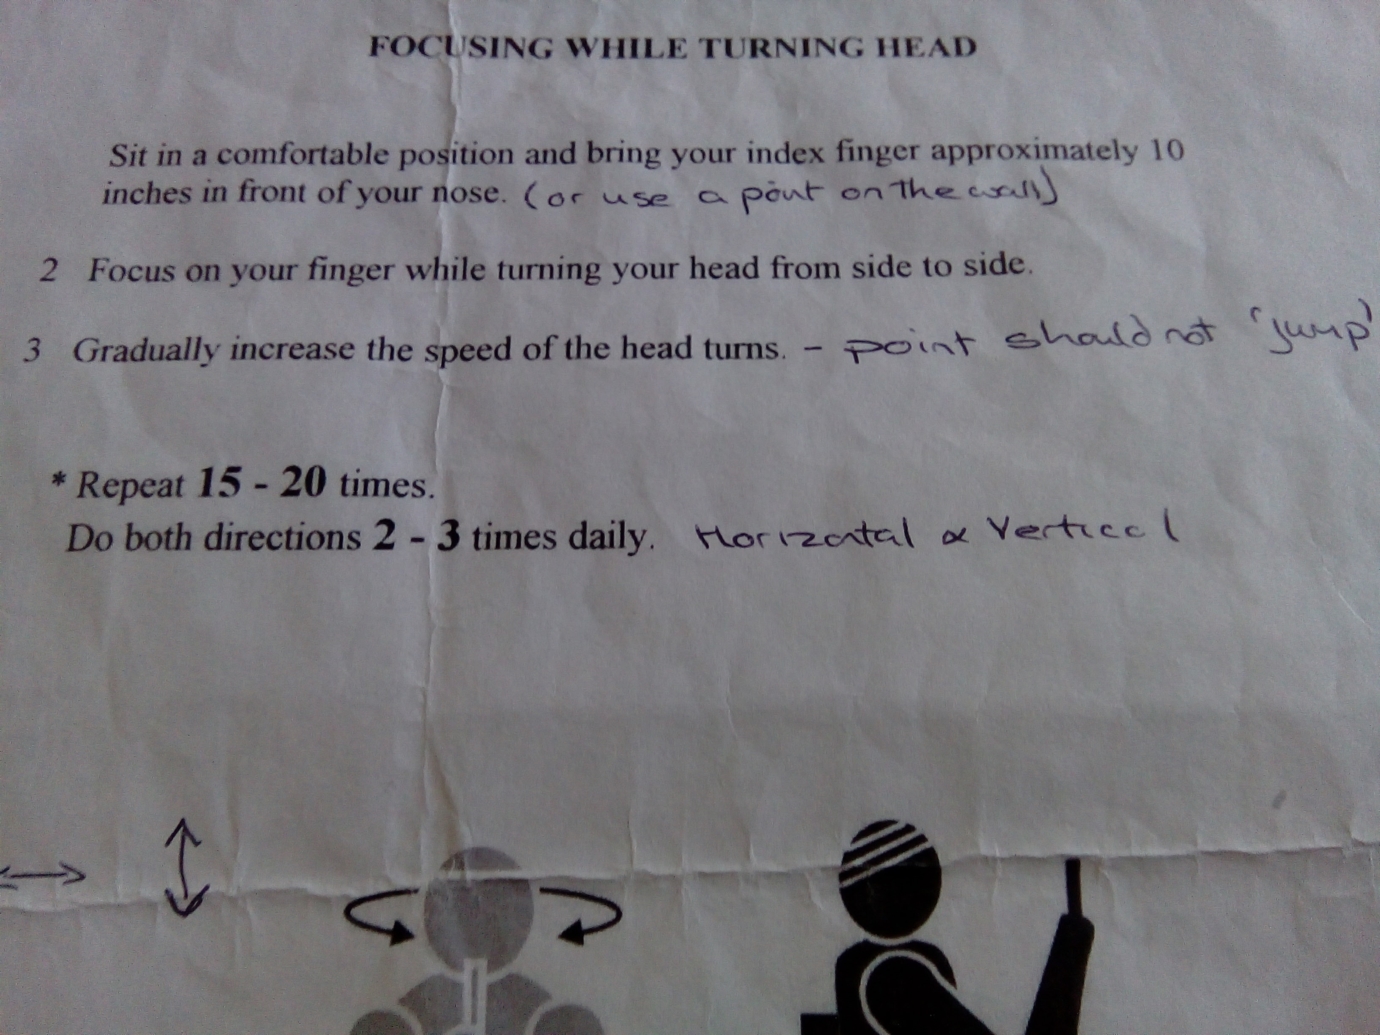 FOCUSING WHILE TURNING HEAD
Sit in a comfortable position and bring your index finger approximately 10
inches in front of your nose. (or use a point on the wall)
2 Focus on your finger while turning your head from side to side.
3 Gradually increase the speed of the head turns. - point should not 'jump'
* Repeat 15 - 20 times.
Do both directions 2 - 3 times daily. Horizontal & Vertical